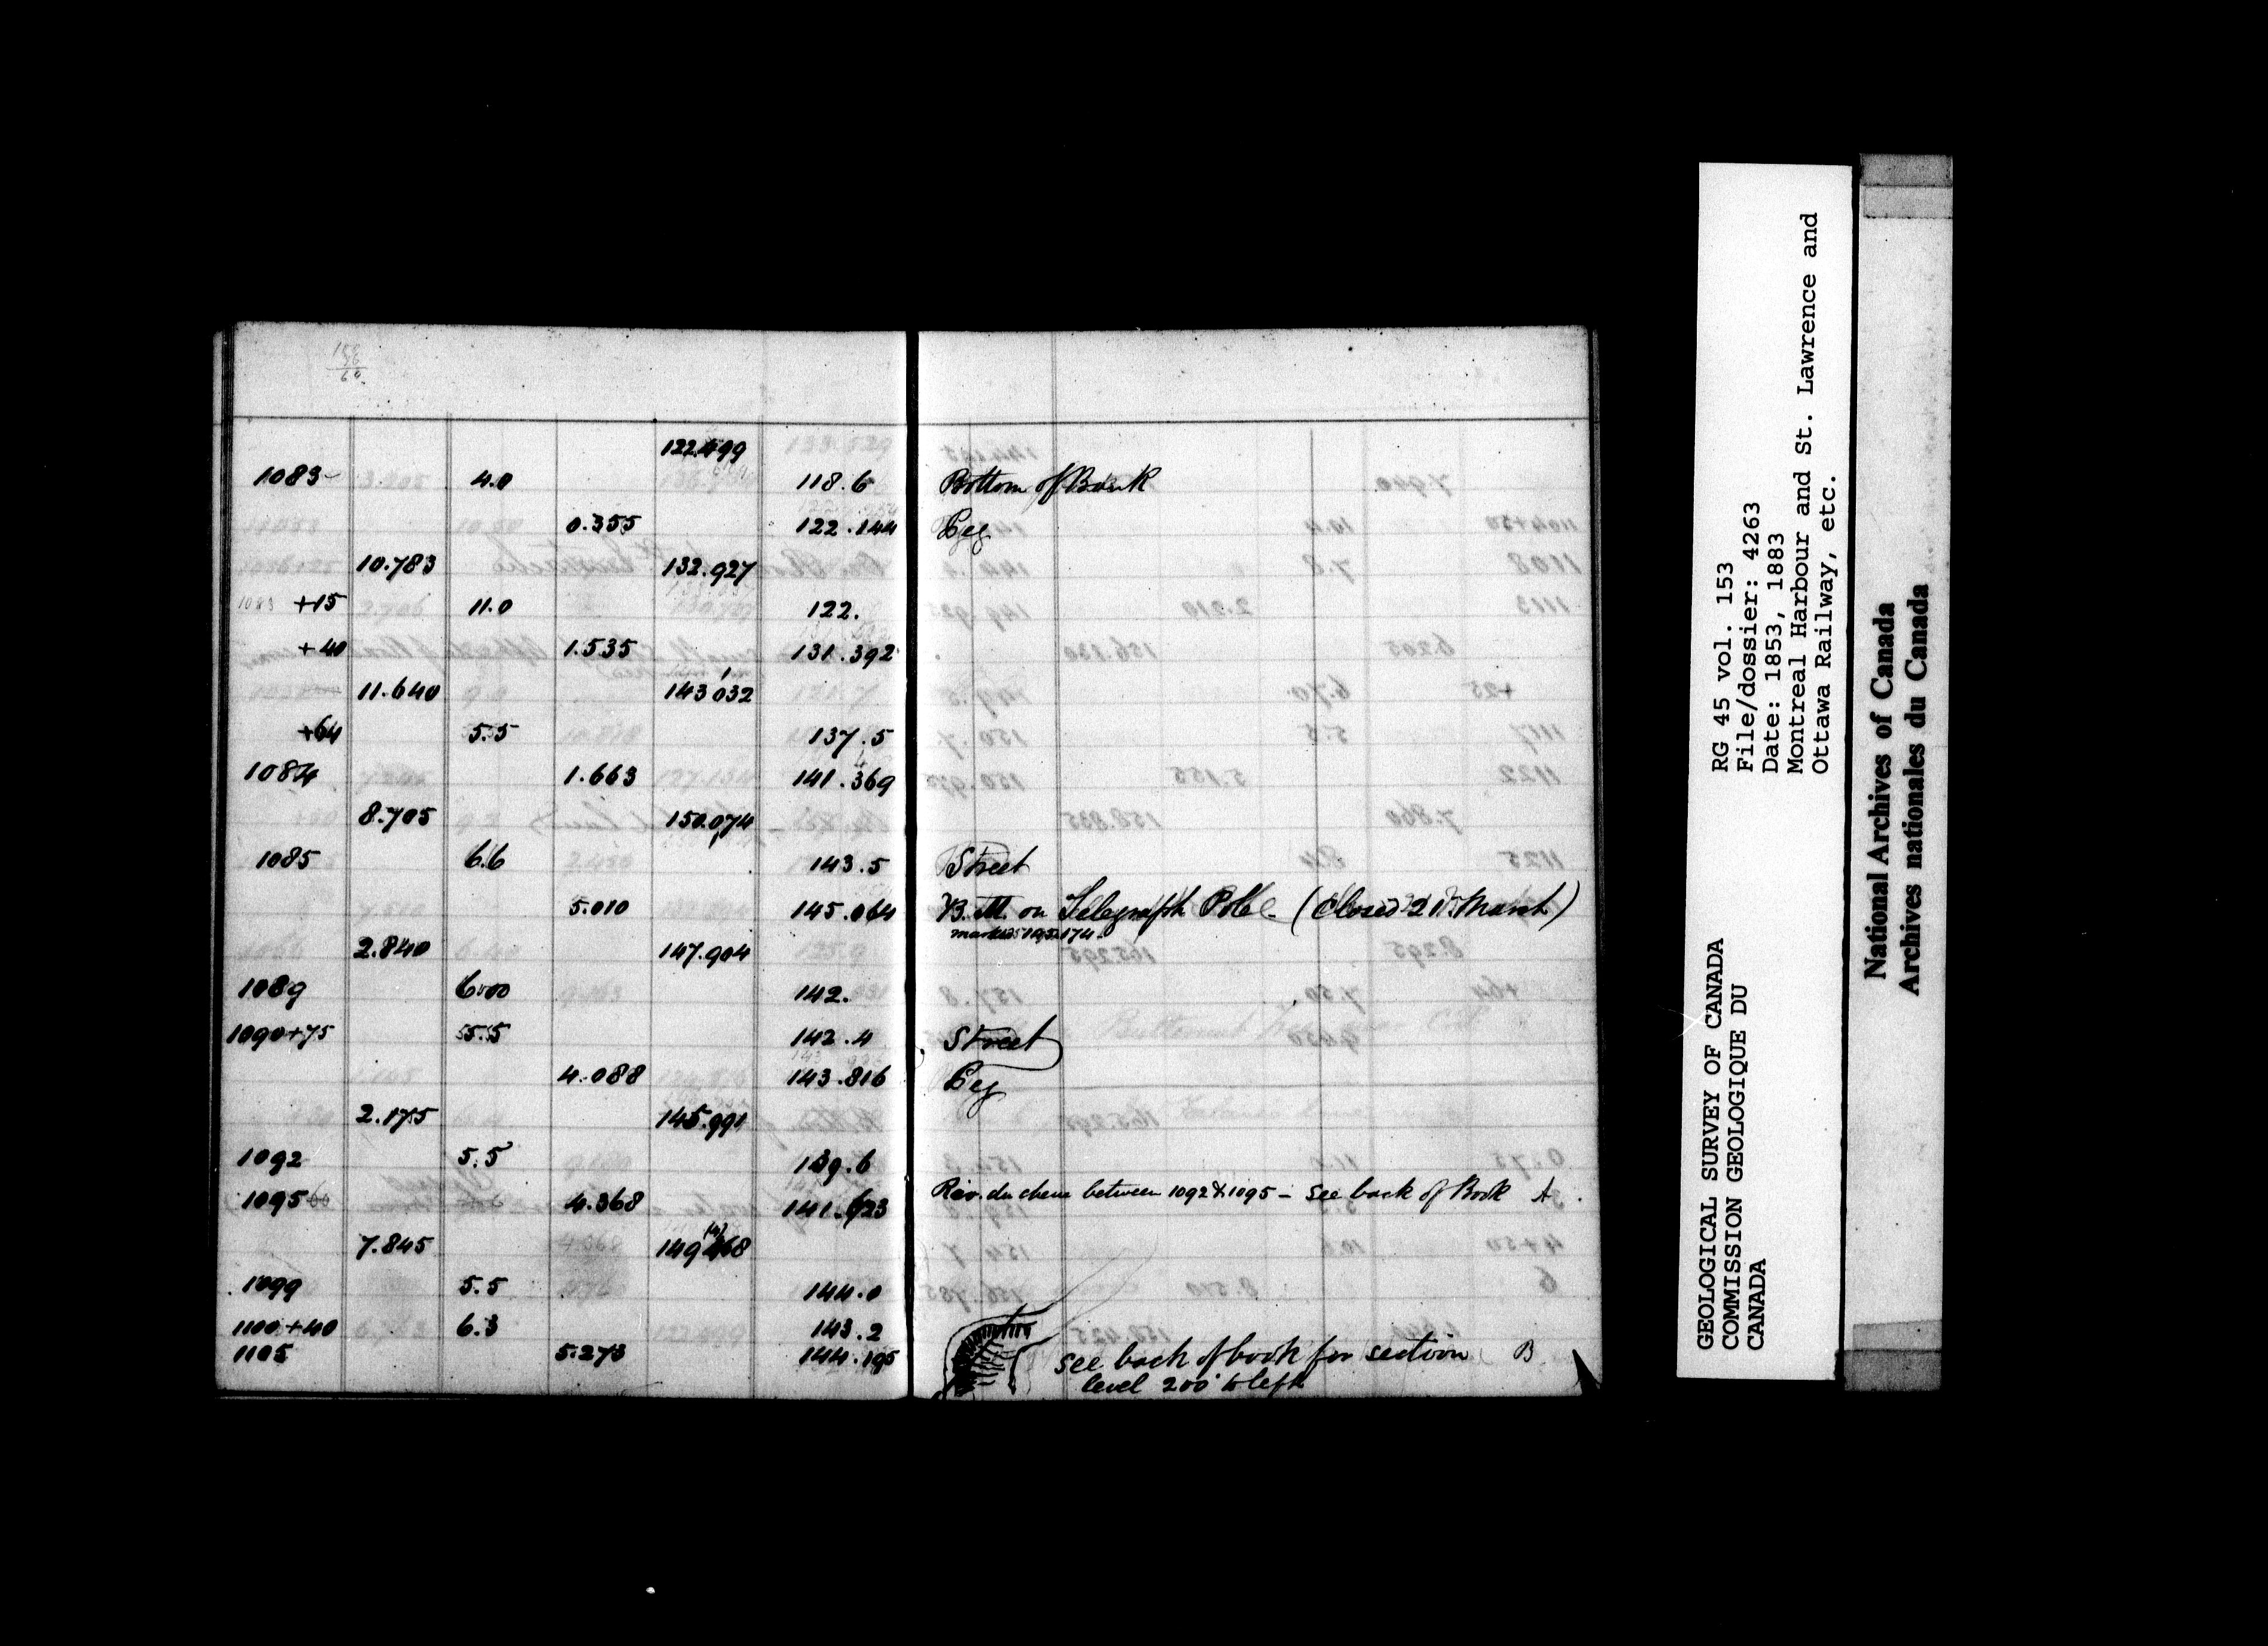 122.499
1083 4.0 118.6 Bottom of Bank
0.355 122.144 Peg
10.783 132.927
+15 11.0 122.
+40 1.535 131.392
11.640 143 032
+64 5.5 137.5
1084 1.663 141.369
8.705 150.074
1085 6.6 143.5 Street
5.010 145.064 B.M. on Telegraph Pole (Closed 21st March)
2.840 147.904
1089 6.00 142.
1090+75 5.5 142.4 Street
4.088 143.816 Peg
2.175 145.991
1092 5.5 139.6
1095 4.368 141.623 Riv. du chene between 1092 & 1095 - see back of Book A
7.845 149 468
1099 5.5 144.0
1100+40 6.3 143.2
1105 5.273 144.195 see back of book for section B
level 200' to left
GEOLOGICAL SURVEY OF CANADA
COMMISSION GEOLOGIQUE DU
CANADA
RG 45 vol. 153
File/dossier: 4263
Date: 1853, 1883
Montreal Harbour and St. Lawrence and
Ottawa Railway, etc.
National Archives of Canada
Archives nationales du Canada